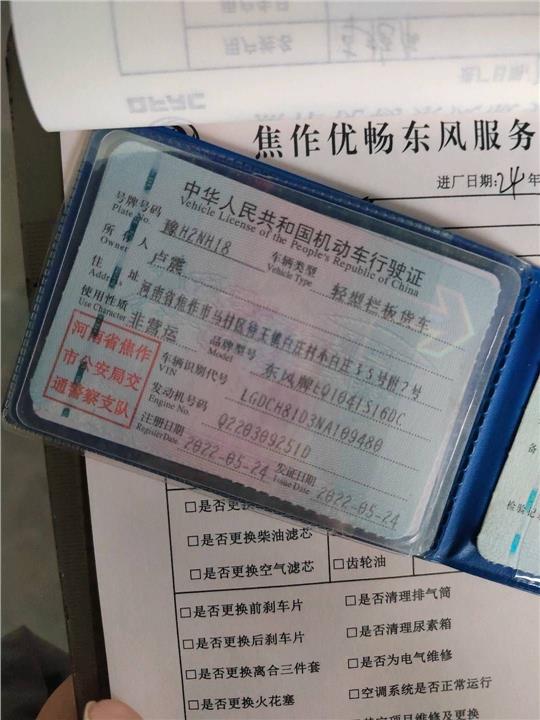 DFAC
焦作优畅东风服务
进厂日期:24年
中华人民共和国机动车行驶证
Vehicle License of the People's Republic of China
号牌号码 豫H2NH18 车辆类型 轻型栏板货车
Plate No. Vehicle Type
所有人 卢震
Owner
住址 河南省焦作市马村区待王镇白庄村小白庄35号附2号
Address
使用性质 非营运 品牌型号 东风牌EQ1041S16DC
Use Character Model
河南省焦作
市公安局交
通警察支队
车辆识别代号 LGDCH81D3NA109480
VIN
发动机号码 Q220309251D
Engine No.
注册日期 2022-05-24 发证日期 2022-05-24
Register Date Issue Date
备
检验记
□是否更换机油滤芯
□是否更换柴油滤芯
□是否更换空气滤芯 □齿轮油
□是否更换前刹车片 □是否清理排气筒
□是否更换后刹车片 □是否清理尿素箱
□是否更换离合三件套 □是否为电气维修
□是否更换火花塞 □空调系统是否正常运行